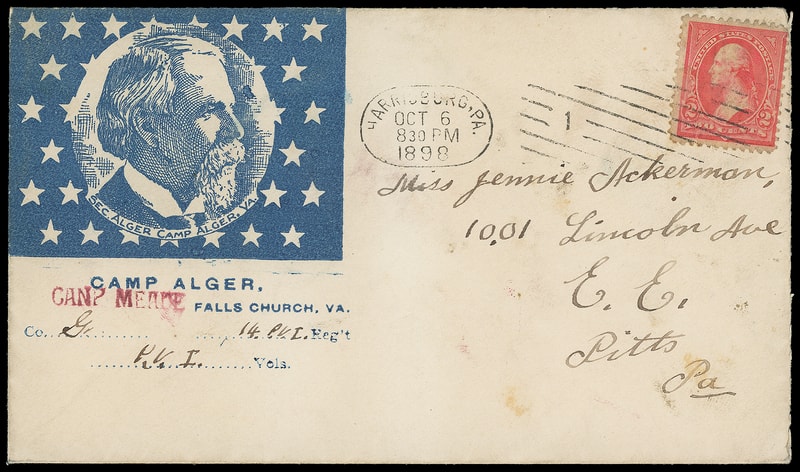 SEC. ALGER "CAMP ALGER, VA.
CAMP ALGER,
CAMP MEADE
FALLS CHURCH, VA.
Co. G. 14 P.V.I. Reg't
P.V.I. Vols.
HARRISBURG, PA.
OCT 6
830 PM
1898
1
UNITED STATES POSTAGE
2 TWO CENTS 2
Miss Jennie Ackerman,
1001 Lincoln Ave
E. E.
Pitts
Pa